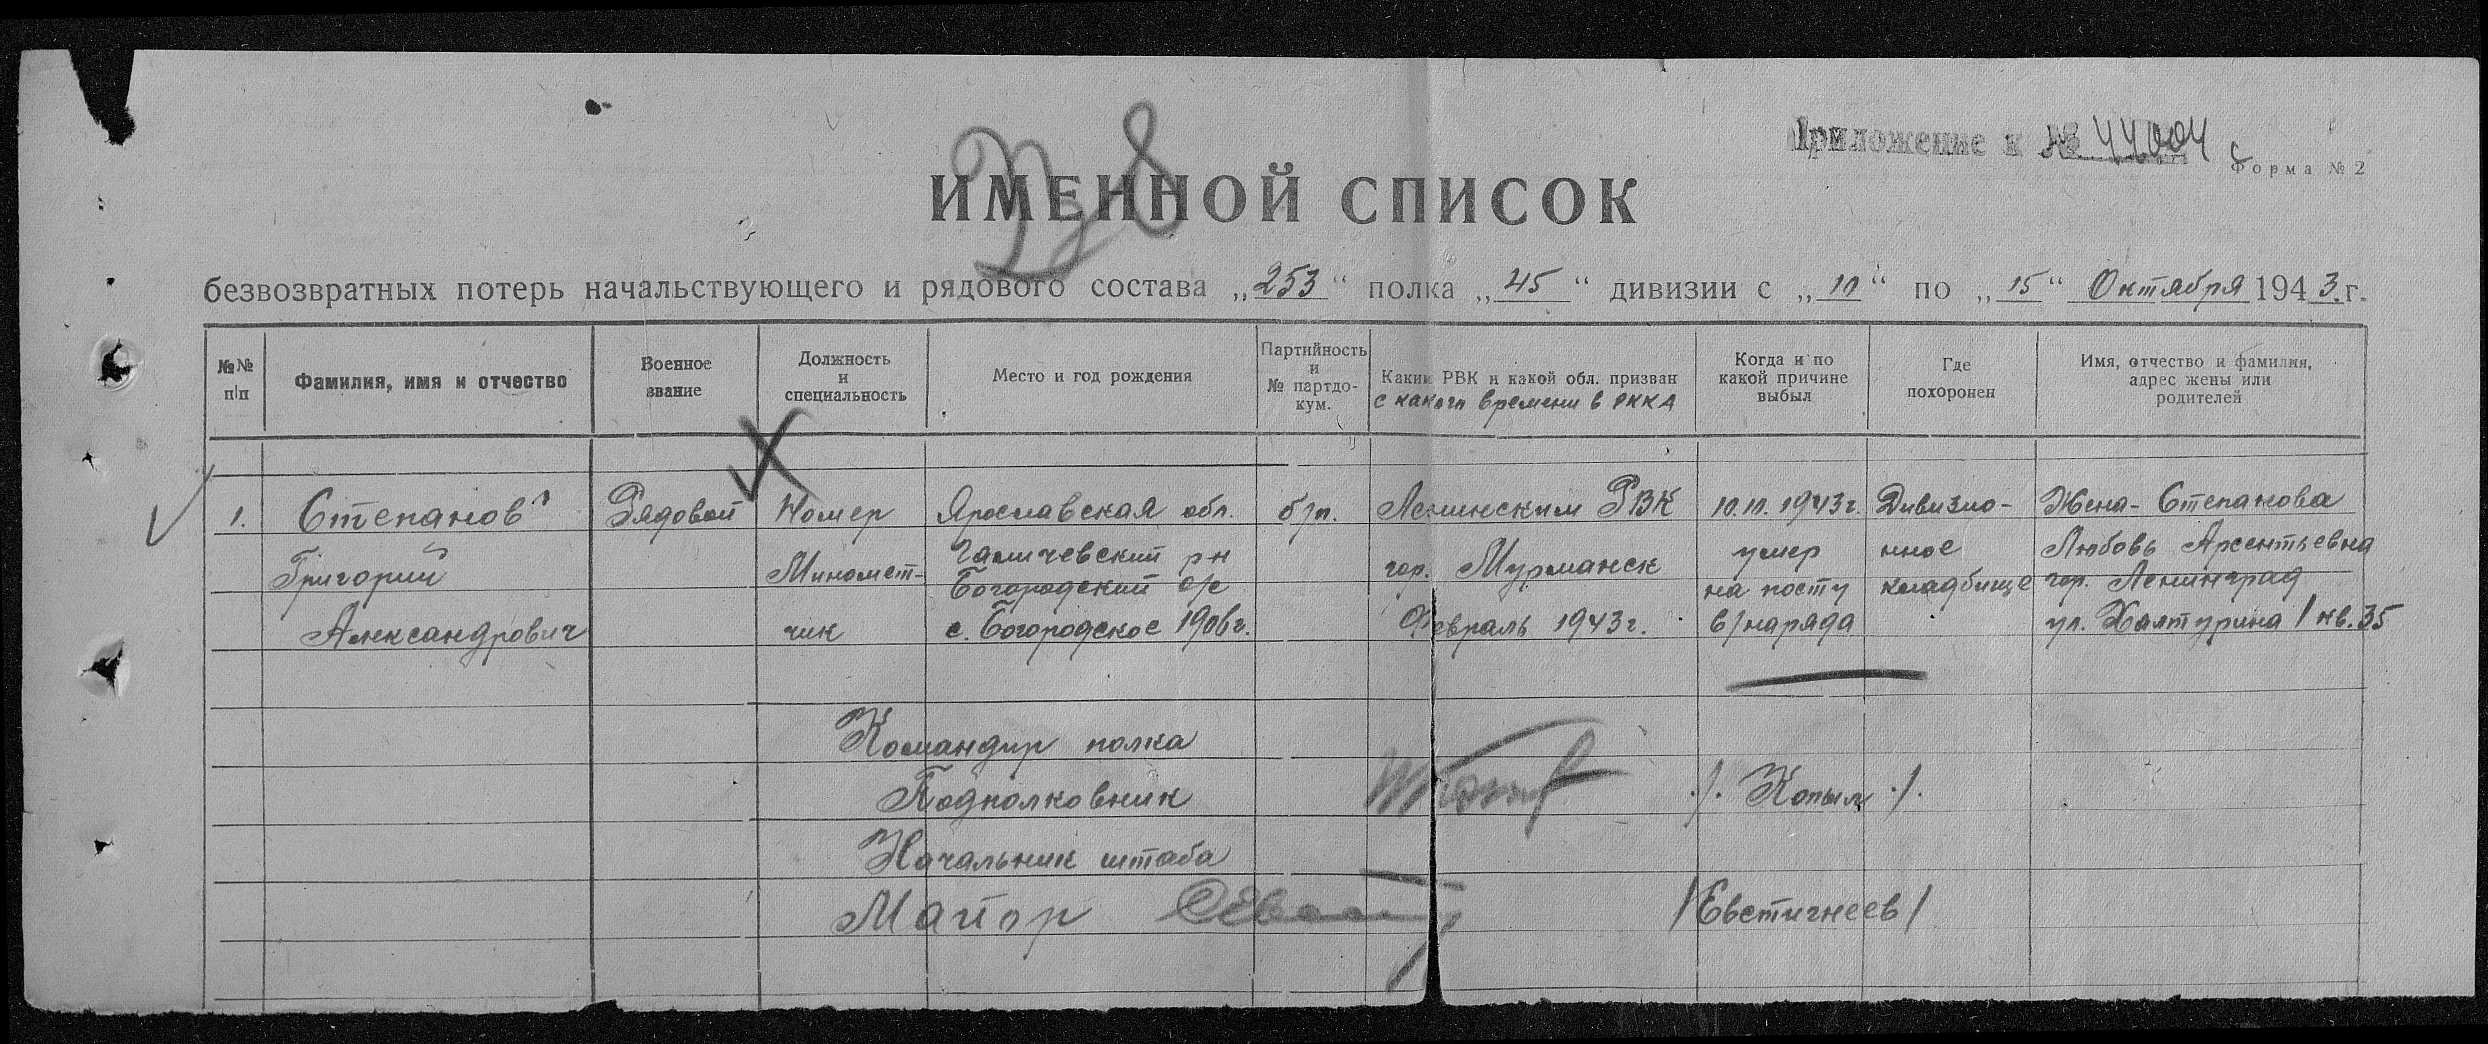 Приложение к № 44004
Форма № 2
ИМЕННОЙ СПИСОК
безвозвратных потерь начальствующего и рядового состава „253“ полка „45“ дивизии с „10“ по „15“ Октября 1943. г.
№№ п/п
Фамилия, имя и отчество
Военное звание
Должность и специальность
Место и год рождения
Партийность и № партдо-кум.
Каким РВК и какой обл. призван
с какого времени в РККА
Когда и по какой причине выбыл
Где похоронен
Имя, отчество и фамилия, адрес жены или родителей
1. Степанов Рядовой Номер Ярославская обл. б/п. Ленинским РВК 10.10.1943г. Дивизио- Жена - Степанова
Григорий Миномет- Галичевский р-н гор. Мурманск умер нное Любовь Арсентьевна
Богородский с/с на посту кладбище гор. Ленинград
Александрович чик с. Богородское 1906г. Февраль 1943г. в/наряда ул. Халтурина 1 кв. 35
Командир полка
Подполковник /Копыл/
Начальник штаба
Майор /Евстигнеев/